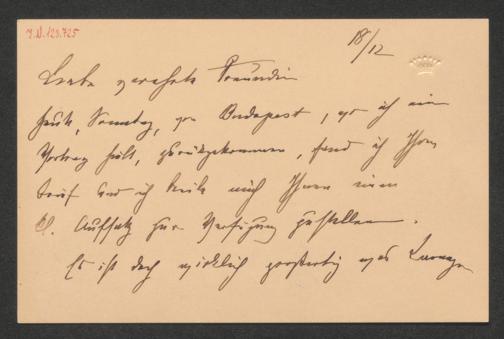 J.N. 129.725
18/12
Liebe verehrte Freundin
heute, Sonntag, von Budapest, wo ich ein
Vortrag hielt, zurückgekommen, fand ich Ihren
Brief und ich beeile mich Ihnen einen
kl. Aufsatz zur Verfügung zu stellen.
Es ist doch wirklich großartig was